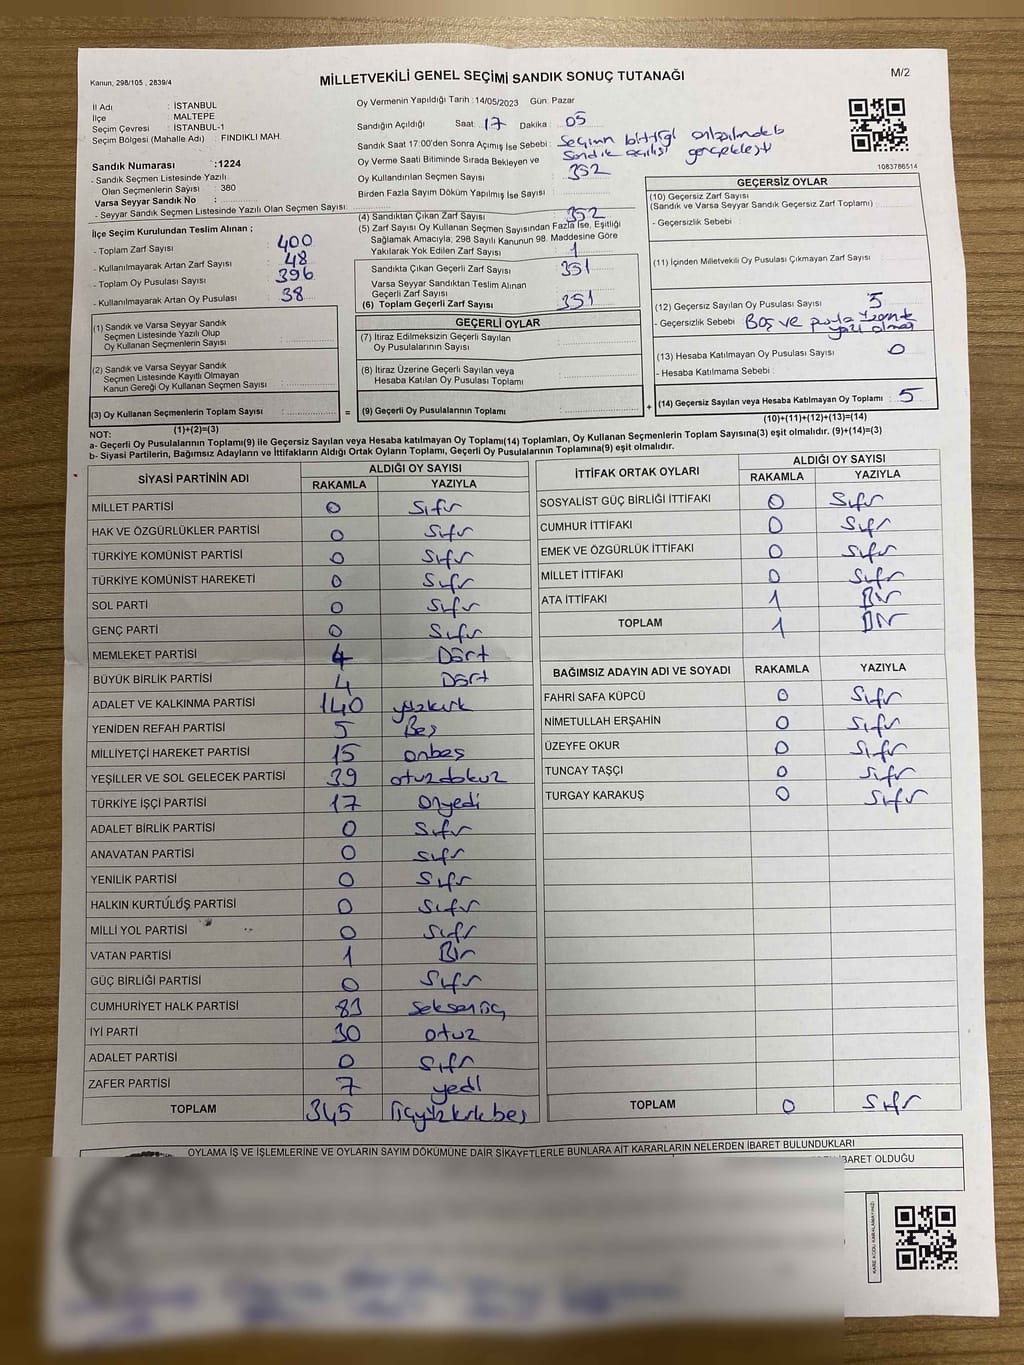 Kanun, 298/105 , 2839/4
MİLLETVEKİLİ GENEL SEÇİMİ SANDIK SONUÇ TUTANAĞI
M/2
İl Adı : İSTANBUL
İlçe : MALTEPE
Seçim Çevresi : İSTANBUL-1
Seçim Bölgesi (Mahalle Adı) : FINDIKLI MAH.
Sandık Numarası : 1224
- Sandık Seçmen Listesinde Yazılı
Olan Seçmenlerin Sayısı : 380
Varsa Seyyar Sandık No :
- Seyyar Sandık Seçmen Listesinde Yazılı Olan Seçmen Sayısı:
Oy Vermenin Yapıldığı Tarih : 14/05/2023 Gün: Pazar
Sandığın Açıldığı Saat: 17 Dakika : 05
Sandık Saat 17.00'den Sonra Açımış İse Sebebi : Seçimin bittiği
Oy Verme Saati Bitiminde Sırada Bekleyen ve Sandık açılışı gerçekleşti
Oy Kullandırılan Seçmen Sayısı : 352
Birden Fazla Sayım Döküm Yapılmış İse Sayısı :
1083786514
İlçe Seçim Kurulundan Teslim Alınan ;
- Toplam Zarf Sayısı : 400
- Kullanılmayarak Artan Zarf Sayısı : 48
- Toplam Oy Pusulası Sayısı : 396
- Kullanılmayarak Artan Oy Pusulası : 38
(1) Sandık ve Varsa Seyyar Sandık
Seçmen Listesinde Yazılı Olup
Oy Kullanan Seçmenlerin Sayısı :
(2) Sandık ve Varsa Seyyar Sandık
Seçmen Listesinde Kayıtlı Olmayan
Kanun Gereği Oy Kullanan Seçmen Sayısı :
(3) Oy Kullanan Seçmenlerin Toplam Sayısı :
(1)+(2)=(3)
(4) Sandıktan Çıkan Zarf Sayısı : 352
(5) Zarf Sayısı Oy Kullanan Seçmen Sayısından Fazla İse, Eşitliği
Sağlamak Amacıyla, 298 Sayılı Kanunun 98. Maddesine Göre
Yakılarak Yok Edilen Zarf Sayısı : 1
Sandıkta Çıkan Geçerli Zarf Sayısı : 351
Varsa Seyyar Sandıktan Teslim Alınan
Geçerli Zarf Sayısı :
(6) Toplam Geçerli Zarf Sayısı : 351
GEÇERLİ OYLAR
(7) İtiraz Edilmeksizin Geçerli Sayılan
Oy Pusulalarının Sayısı :
(8) İtiraz Üzerine Geçerli Sayılan veya
Hesaba Katılan Oy Pusulası Toplamı :
= (9) Geçerli Oy Pusulalarının Toplamı :
GEÇERSİZ OYLAR
(10) Geçersiz Zarf Sayısı
(Sandık ve Varsa Seyyar Sandık Geçersiz Zarf Toplamı) :
- Geçersizlik Sebebi :
(11) İçinden Milletvekili Oy Pusulası Çıkmayan Zarf Sayısı :
(12) Geçersiz Sayılan Oy Pusulası Sayısı : 5
- Geçersizlik Sebebi : Boş ve
(13) Hesaba Katılmayan Oy Pusulası Sayısı : 0
- Hesaba Katılmama Sebebi :
+ (14) Geçersiz Sayılan veya Hesaba Katılmayan Oy Toplamı : 5
(10)+(11)+(12)+(13)=(14)
NOT:
a- Geçerli Oy Pusulalarının Toplamı(9) ile Geçersiz Sayılan veya Hesaba katılmayan Oy Toplamı(14) Toplamları, Oy Kullanan Seçmenlerin Toplam Sayısına(3) eşit olmalıdır. (9)+(14)=(3)
b- Siyasi Partilerin, Bağımsız Adayların ve İttifakların Aldığı Ortak Oyların Toplamı, Geçerli Oy Pusulalarının Toplamına(9) eşit olmalıdır.
SİYASİ PARTİNİN ADI ALDIĞI OY SAYISI
RAKAMLA YAZIYLA
MİLLET PARTİSİ 0 Sıfır
HAK VE ÖZGÜRLÜKLER PARTİSİ 0 Sıfır
TÜRKİYE KOMÜNİST PARTİSİ 0 Sıfır
TÜRKİYE KOMÜNİST HAREKETİ 0 Sıfır
SOL PARTİ 0 Sıfır
GENÇ PARTİ 0 Sıfır
MEMLEKET PARTİSİ 4 Dört
BÜYÜK BİRLİK PARTİSİ 4 Dört
ADALET VE KALKINMA PARTİSİ 140 yüzkırk
YENİDEN REFAH PARTİSİ 5 Beş
MİLLİYETÇİ HAREKET PARTİSİ 15 onbeş
YEŞİLLER VE SOL GELECEK PARTİSİ 39 otuzdokuz
TÜRKİYE İŞÇİ PARTİSİ 17 Onyedi
ADALET BİRLİK PARTİSİ 0 Sıfır
ANAVATAN PARTİSİ 0 Sıfır
YENİLİK PARTİSİ 0 Sıfır
HALKIN KURTULUŞ PARTİSİ 0 Sıfır
MİLLİ YOL PARTİSİ 0 Sıfır
VATAN PARTİSİ 1 Bir
GÜÇ BİRLİĞİ PARTİSİ 0 Sıfır
CUMHURİYET HALK PARTİSİ 83 seksenüç
İYİ PARTİ 30 otuz
ADALET PARTİSİ 0 Sıfır
ZAFER PARTİSİ 7 yedi
TOPLAM 345 Üçyüzkırkbeş
İTTİFAK ORTAK OYLARI ALDIĞI OY SAYISI
RAKAMLA YAZIYLA
SOSYALİST GÜÇ BİRLİĞİ İTTİFAKI 0 Sıfır
CUMHUR İTTİFAKI 0 Sıfır
EMEK VE ÖZGÜRLÜK İTTİFAKI 0 Sıfır
MİLLET İTTİFAKI 0 Sıfır
ATA İTTİFAKI 1 Bir
TOPLAM 1 Bir
BAĞIMSIZ ADAYIN ADI VE SOYADI RAKAMLA YAZIYLA
FAHRİ SAFA KÜPCÜ 0 Sıfır
NİMETULLAH ERŞAHİN 0 Sıfır
ÜZEYFE OKUR 0 Sıfır
TUNCAY TAŞÇI 0 Sıfır
TURGAY KARAKUŞ 0 Sıfır
TOPLAM 0 Sıfır
OYLAMA İŞ VE İŞLEMLERİNE VE OYLARIN SAYIM DÖKÜMÜNE DAİR ŞİKAYETLERLE BUNLARA AİT KARARLARIN NELERDEN İBARET BULUNDUKLARI
İBARET OLDUĞU
KARE KODU KARALAMAYINIZ!